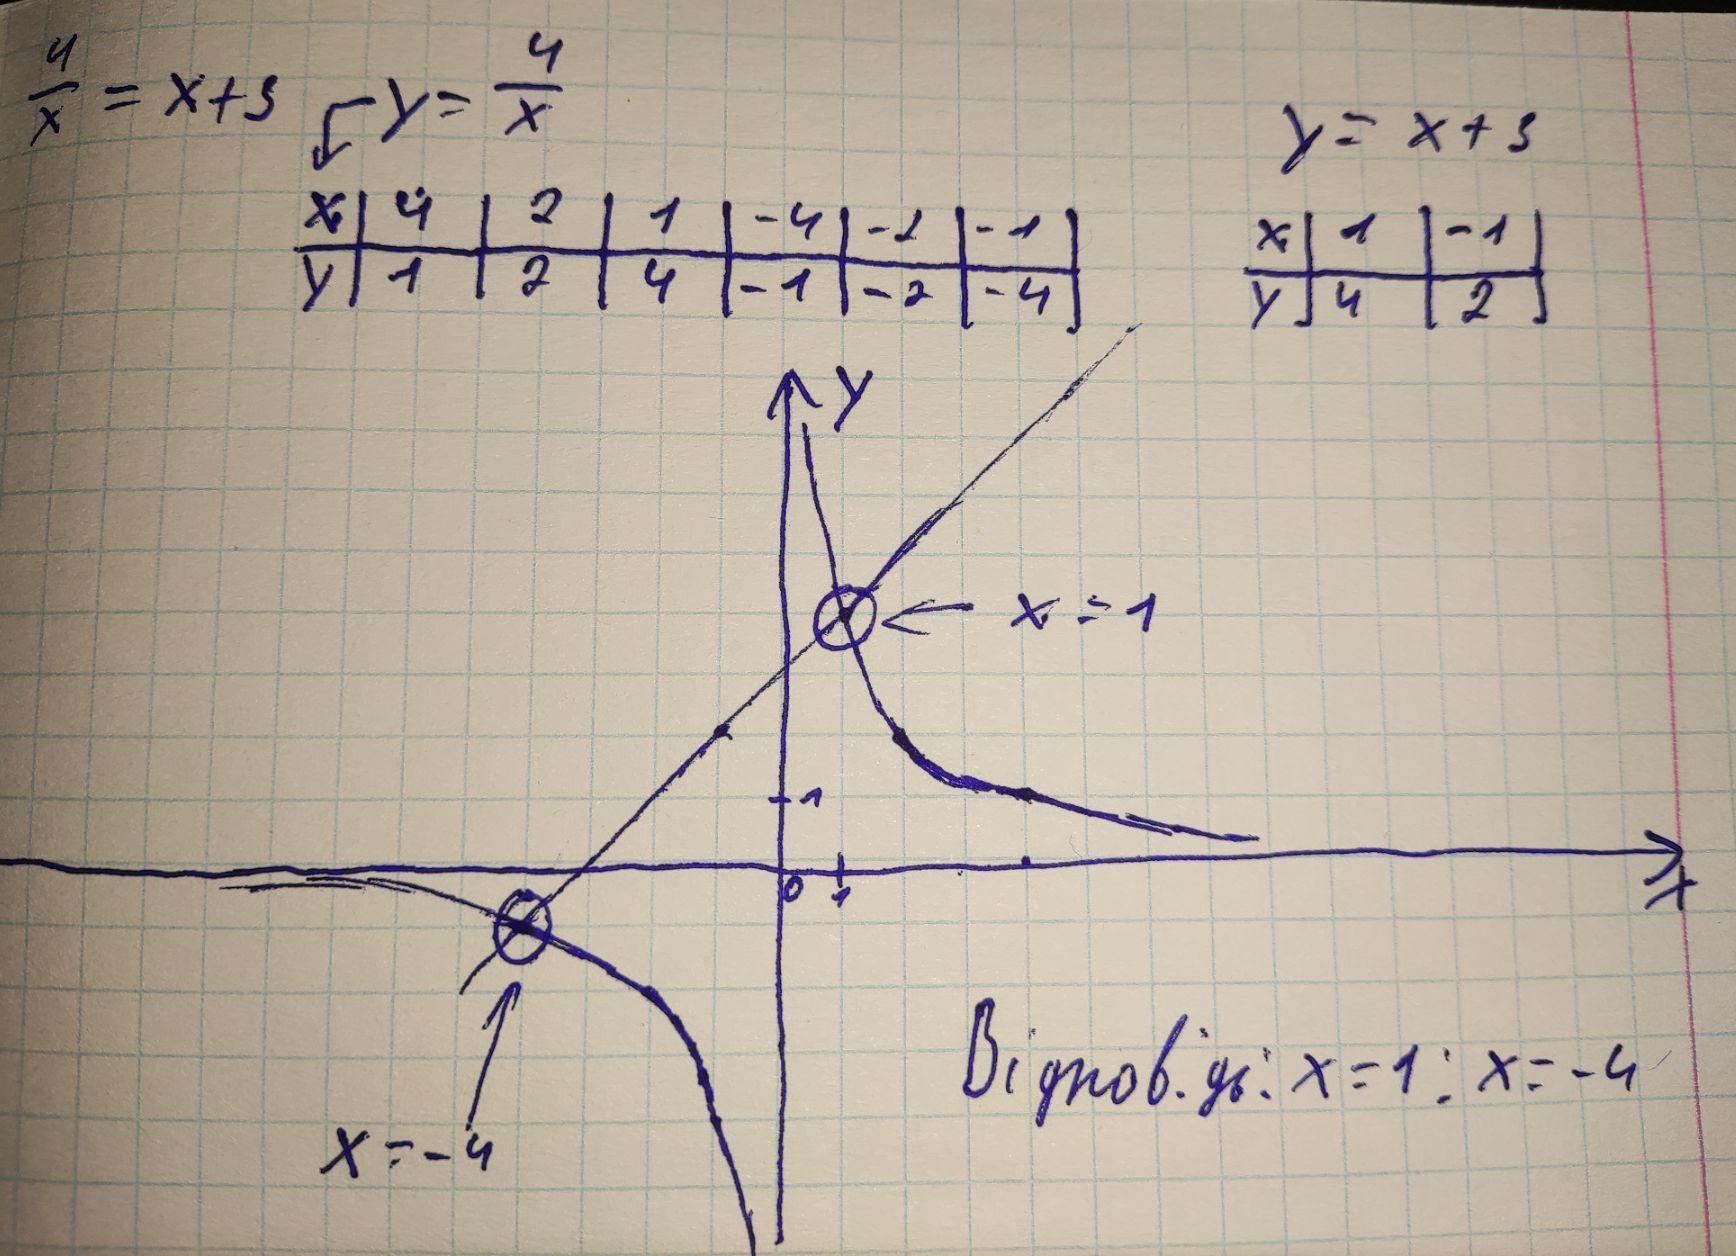 4/x = x+3
y = 4/x
y = x+3
x | 4 | 2 | 1 | -4 | -2 | -1
y | 1 | 2 | 4 | -1 | -2 | -4
x | 1 | -1
y | 4 | 2
y
x = 1
1
0
1
x
x = -4
Відповідь: x = 1; x = -4